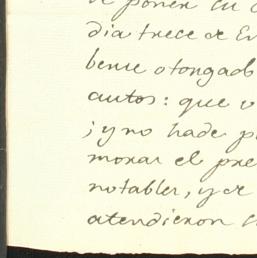 de poner en
dia trece de En
bense otorgado
autos: que v
; y no hade p
morar el pre
notables, y de
atendieron